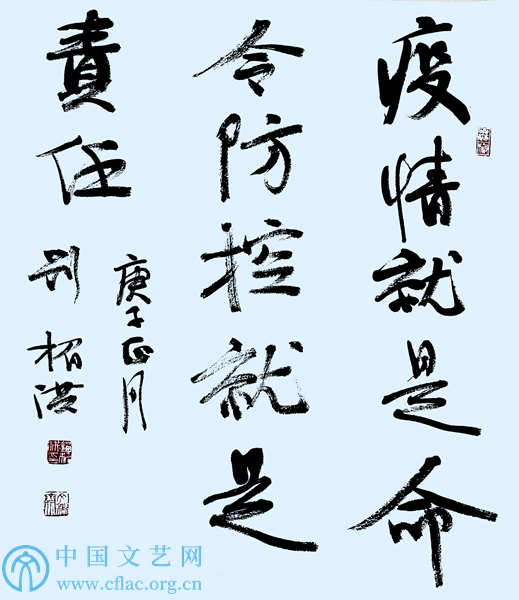 疫情就是命
令防控就是
責任
庚子正月
中国文艺网
www.cflac.org.cn